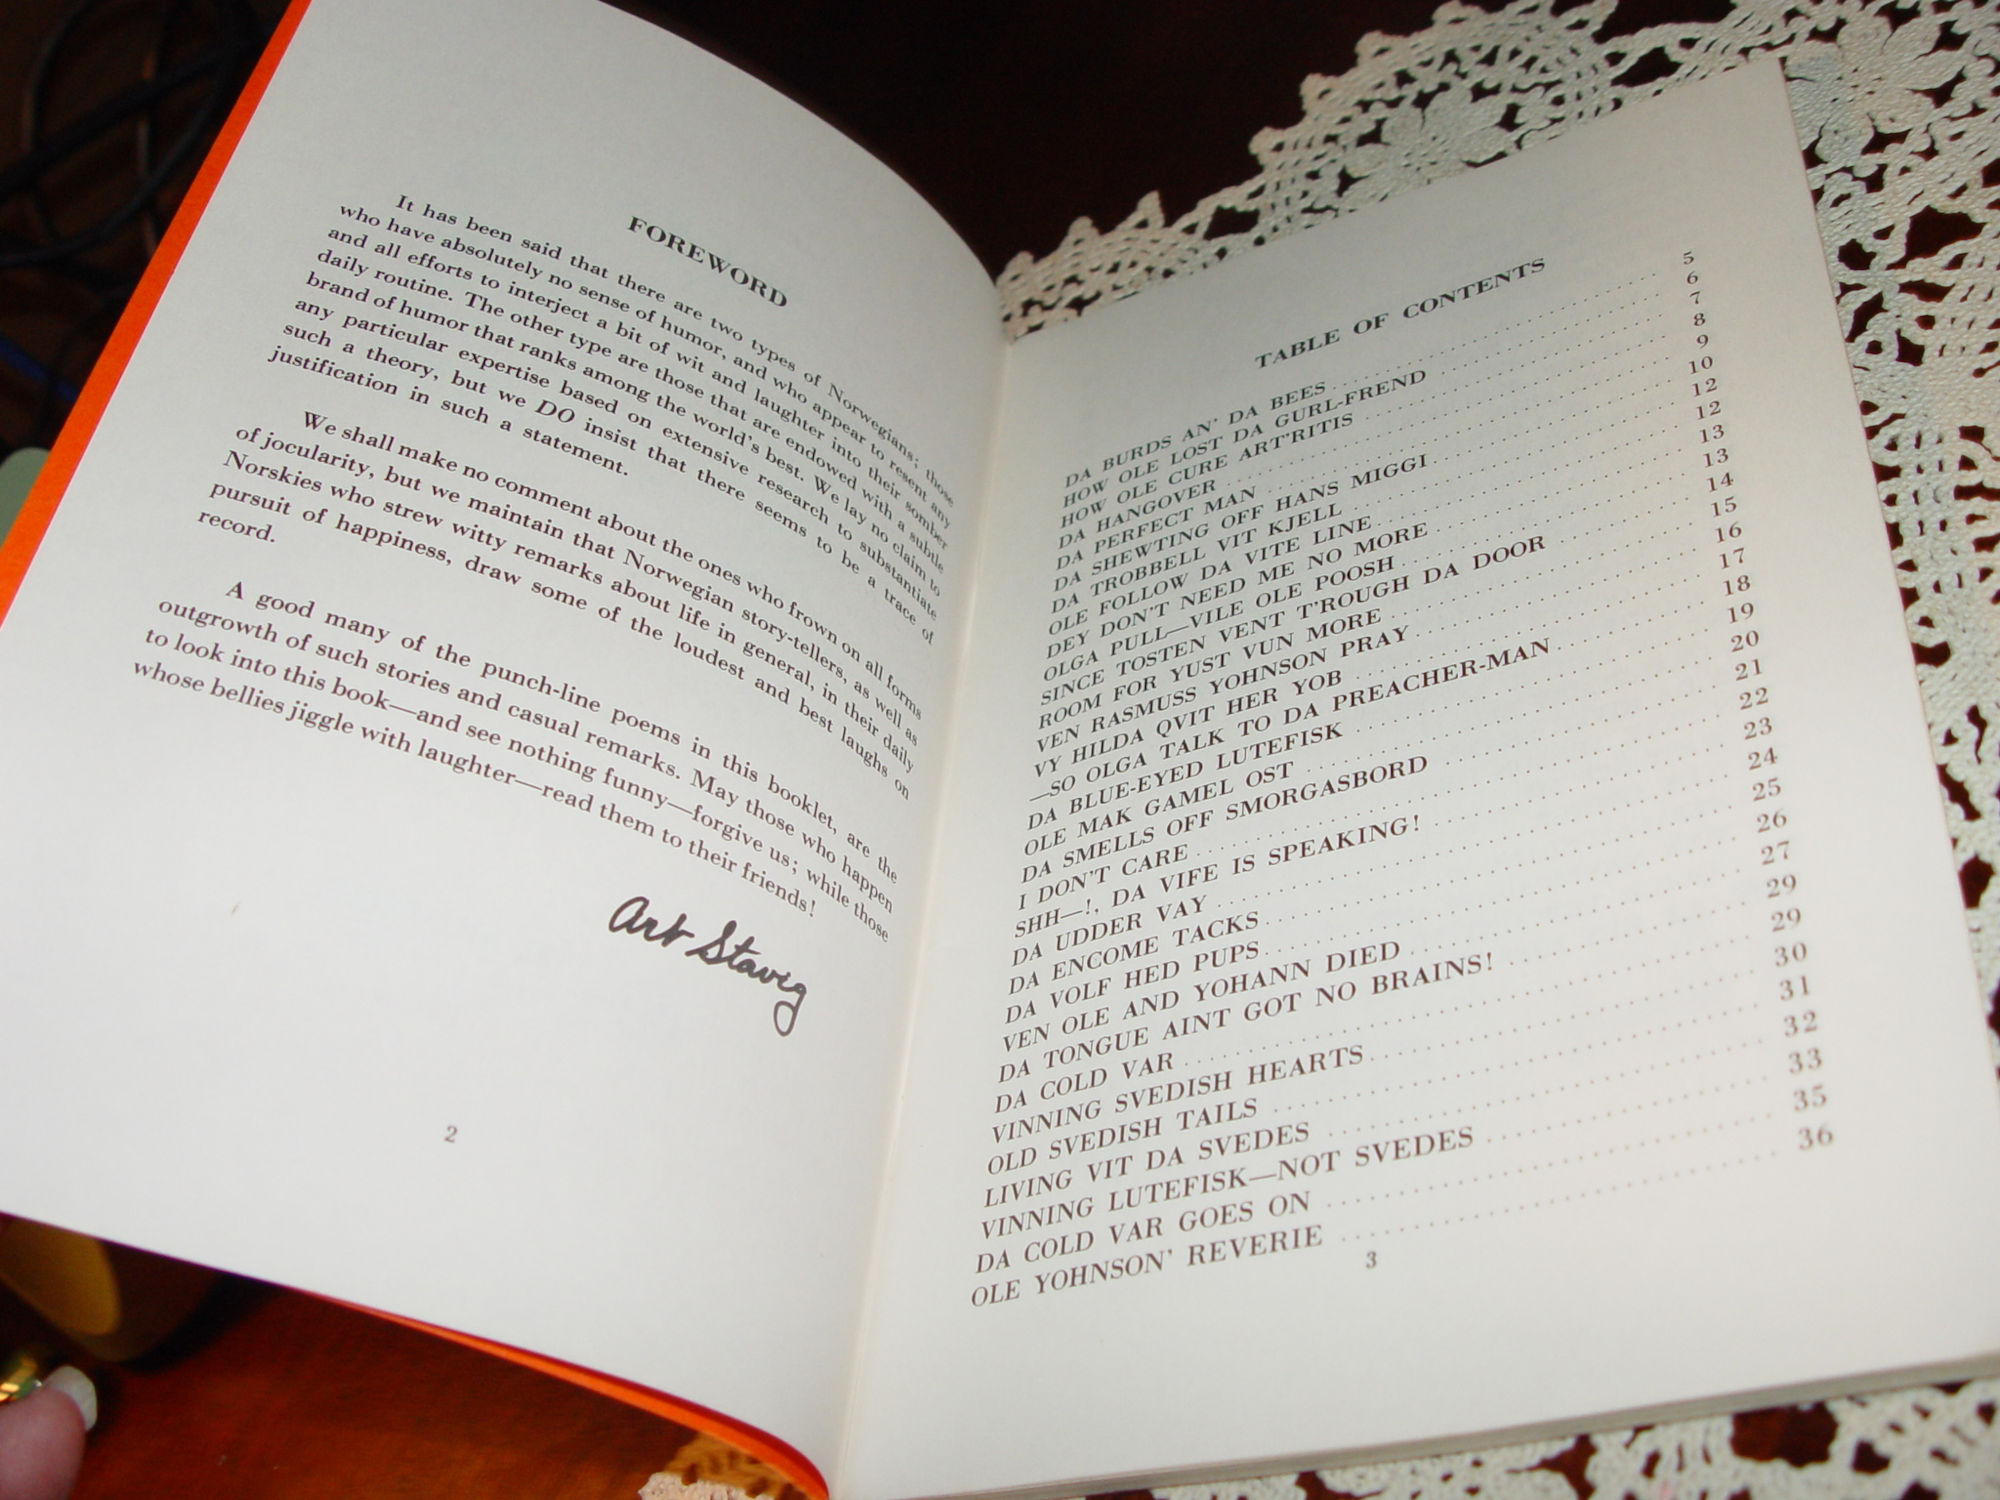 FOREWORD
It has been said that there are two types of Norwegians; those
who have absolutely no sense of humor, and who appear to resent any
and all efforts to interject a bit of wit and laughter into their somber
daily routine. The other type are those that are endowed with a subtle
brand of humor that ranks among the world's best. We lay no claim to
any particular expertise based on extensive research to substantiate
such a theory, but we DO insist that there seems to be a trace of
justification in such a statement.
We shall make no comment about the ones who frown on all forms
of jocularity, but we maintain that Norwegian story-tellers, as well as
Norskies who strew witty remarks about life in general, in their daily
pursuit of happiness, draw some of the loudest and best laughs on
record.
A good many of the punch-line poems in this booklet, are the
outgrowth of such stories and casual remarks. May those who happen
to look into this book—and see nothing funny—forgive us; while those
whose bellies jiggle with laughter—read them to their friends!
Art Stavig
2
TABLE OF CONTENTS
DA BURDS AN' DA BEES 5
HOW OLE LOST DA GURL-FREND 6
HOW OLE CURE ART'RITIS 7
DA HANGOVER 8
DA PERFECT MAN 9
DA SHEWTING OFF HANS MIGGI 10
DA TROBBELL VIT KJELL 12
OLE FOLLOW DA VITE LINE 12
DEY DON'T NEED ME NO MORE 13
OLGA PULL—VILE OLE POOSH 13
SINCE TOSTEN VENT T'ROUGH DA DOOR 14
ROOM FOR YUST VUN MORE 15
VEN RASMUSS YOHNSON PRAY 16
VY HILDA QVIT HER YOB 17
—SO OLGA TALK TO DA PREACHER-MAN 18
DA BLUE-EYED LUTEFISK 19
OLE MAK GAMEL OST 20
DA SMELLS OFF SMORGASBORD 21
I DON'T CARE 22
SHH—!, DA VIFE IS SPEAKING! 23
DA UDDER VAY 24
DA ENCOME TACKS 25
DA VOLF HED PUPS 26
VEN OLE AND YOHANN DIED 27
DA TONGUE AINT GOT NO BRAINS! 29
DA COLD VAR 29
VINNING SVEDISH HEARTS 30
OLD SVEDISH TAILS 31
LIVING VIT DA SVEDES 32
VINNING LUTEFISK—NOT SVEDES 33
DA COLD VAR GOES ON 35
OLE YOHNSON' REVERIE 36
3